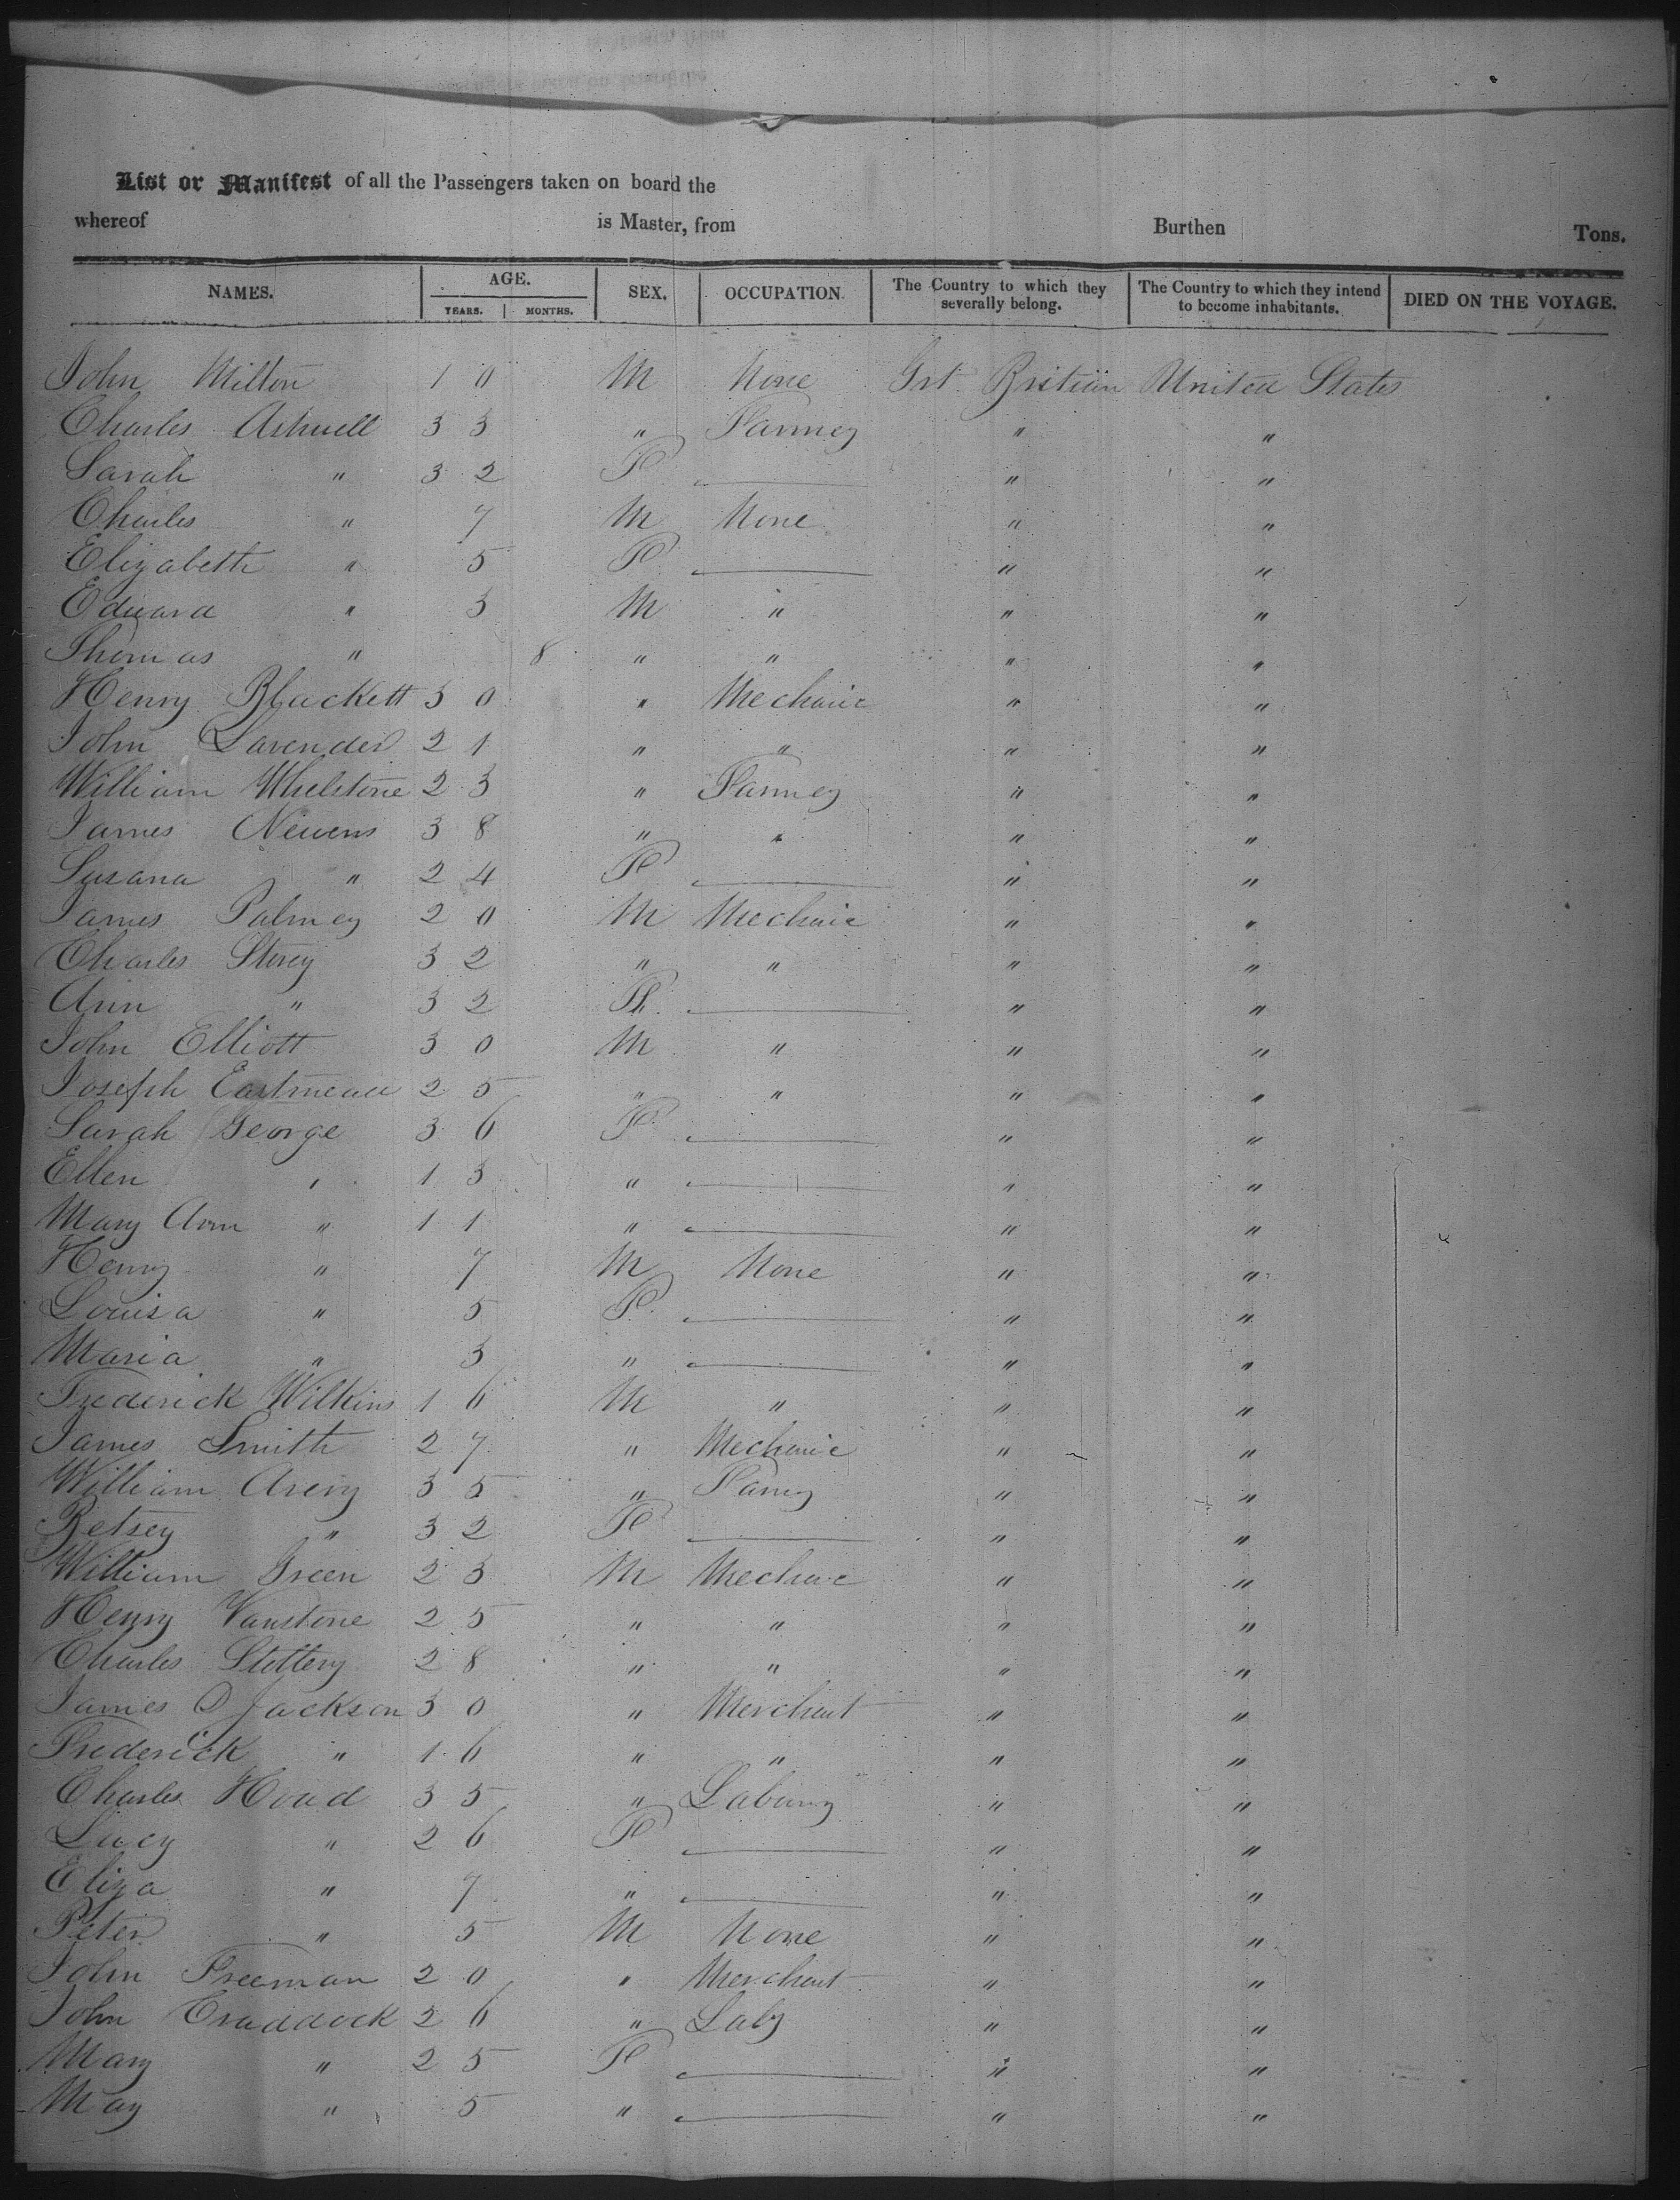 List or Manifest of all the Passengers taken on board the
whereof is Master, from Burthen Tons.
NAMES. AGE. YEARS. MONTHS. SEX. OCCUPATION. The Country to which they severally belong. The Country to which they intend to become inhabitants. DIED ON THE VOYAGE.
John Milton 10 M None Grt Britian United States
Charles Ashwell 33 " Farmer " "
Sarah " 32 F " "
Charles " 7 M None " "
Elizabeth " 5 F " "
Edward " 3 M " " "
Thomas " 8 " " " "
Henry Blackett 30 " Mechanic " "
John Lavender 21 " " " "
William Whelstone 23 " Farmer " "
James Newens 38 " " " "
Susana " 24 F " "
James Palmer 20 M Mechanic " "
Charles Storey 32 " " " "
Ann " 32 F " "
John Elliott 30 M " " "
Joseph Eastmead 25 " " " "
Sarah George 36 F " "
Ellen " 13 " " "
Mary Ann " 11 " " "
Henry " 7 M None " "
Louisa " 5 F " "
Maria " 3 " " "
Frederick Wilkins 16 M " " "
James Smith 27 " Mechanic " "
William Avery 35 " Farmr " "
Betsey " 32 F " "
William Green 23 M Mechanic " "
Henry Vanstone 25 " " " "
Charles 28 " " " "
James D Jackson 30 " Merchant " "
Frederick " 16 " " " "
Charles Hoad 35 " Laburer " "
Lucy " 26 F " "
Eliza " 7 " " "
Peter " 5 M None " "
John Freeman 20 " Merchant " "
John Craddock 26 " Labr " "
Mary " 25 F " "
May " 5 " " "